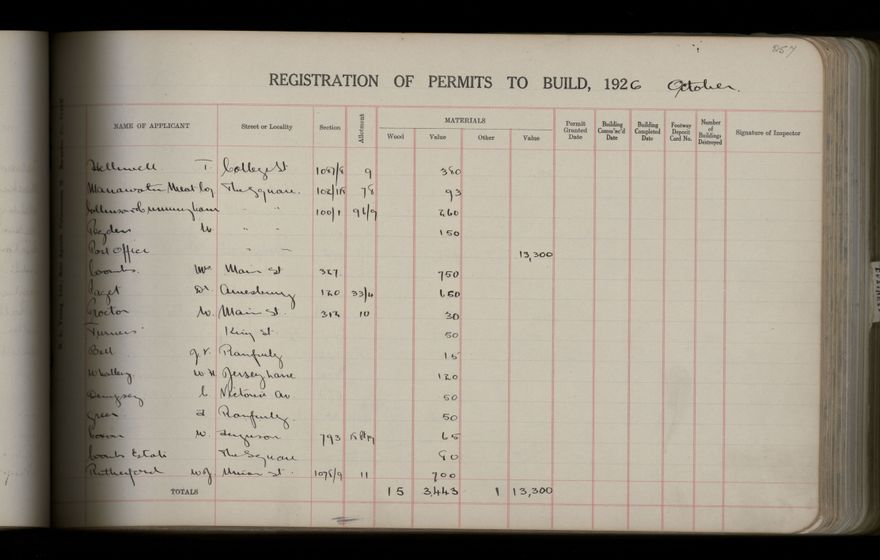 257
REGISTRATION OF PERMITS TO BUILD, 1926 October.
NAME OF APPLICANT Street or Locality Section Allotment MATERIALS Permit Granted Date Building Comm'nc'd Date Building Completed Date Footway Deposit Card No. Number of Buildings Destroyed Signature of Inspector
Wood Value Other Value
Helliwell T. College St 9 380
Manawatu Meat Coy The Square. 78 93
" " 100/1 96/9 260
Pegden W " " 150
Post Office " " 13,300
Coombs. Mrs Main St 367 750
Paget Dr. Amesbury 120 33/4 650
Proctor W. Main St. 312 10 30
King St. 50
Bell Ranfurly 15
W H Jersey Lane 120
Dempsey C Victoria Av 50
Green Ranfurly. 50
W. Ferguson 793 65
Coombs Estate The Square 80
Rutherford W J Main St. 1075/9 11 700
TOTALS 15 3,443 1 13,300